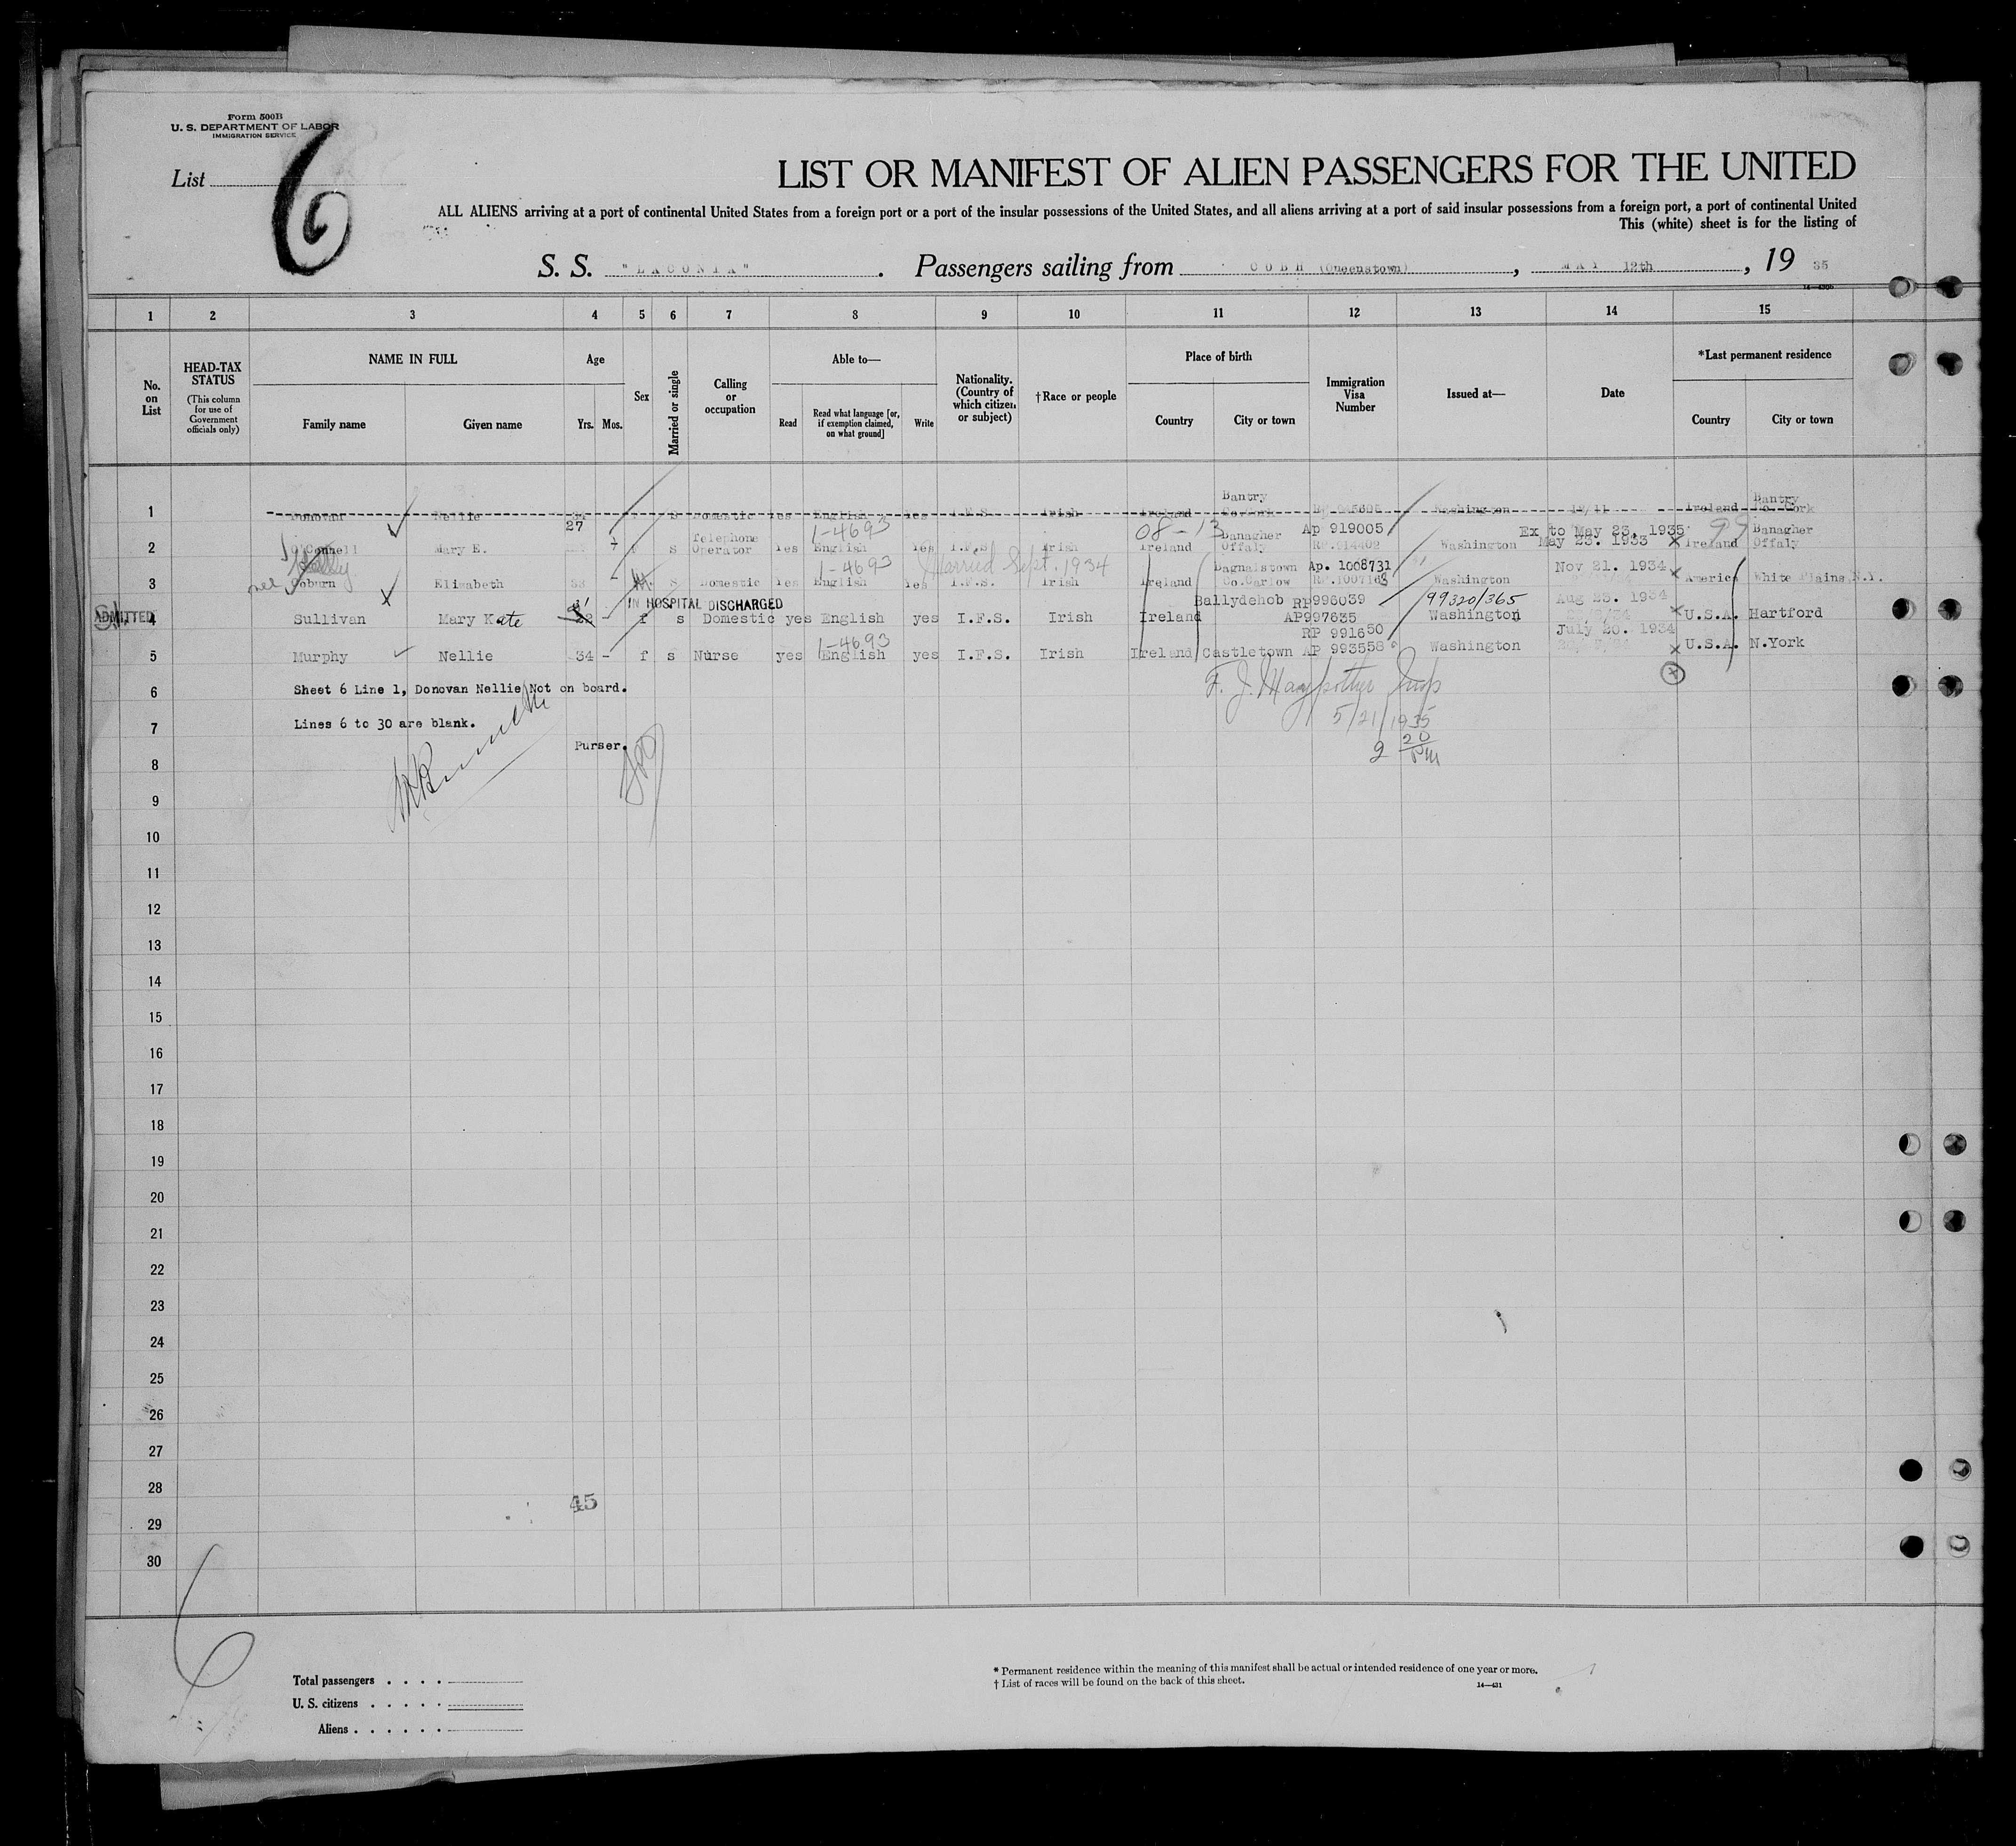 Form 500B
U. S. DEPARTMENT OF LABOR
IMMIGRATION SERVICE
List 6
LIST OR MANIFEST OF ALIEN PASSENGERS FOR THE UNITED
ALL ALIENS arriving at a port of continental United States from a foreign port or a port of the insular possessions of the United States, and all aliens arriving at a port of said insular possessions from a foreign port, a port of continental United
This (white) sheet is for the listing of
S. S. "LACONIA" . Passengers sailing from COBH (Queenstown) , MAY 12th , 19 35
1 2 3 4 5 6 7 8 9 10 11 12 13 14 15
No. on List
HEAD-TAX STATUS (This column for use of Government officials only)
NAME IN FULL
Family name Given name
Age
Yrs. Mos.
Sex
Married or single
Calling or occupation
Able to—
Read Read what language [or, if exemption claimed, on what ground] Write
Nationality. (Country of which citizen or subject)
† Race or people
Place of birth
Country City or town
Immigration Visa Number
Issued at—
Date
*Last permanent residence
Country City or town
Bantry Bantry
1 Donovan Nellie S Domestic Yes English Yes I.F.S. Irish Ireland Co.Cork Washington Ireland Co. Cork
27 Telephone 1-4693 08-13 Banagher Ap 919005 Ex to May 23, 1935 99 Banagher
2 O'Connell Mary E. S Operator Yes English Yes I.F.S. Irish Ireland Offaly Washington May 23. 1933 Ireland Offaly
1-4693 Married Sept. 1934 Bagnalstown Ap. 1008731 Nov 21. 1934
3 Coburn Elizabeth 33 S Domestic Yes English Yes I.F.S. Irish Ireland Co.Carlow Washington America White Plains N.Y.
IN HOSPITAL DISCHARGED Ballydehob RP996039 99320/365 Aug 23. 1934
ADMITTED 4 Sullivan Mary Kate f s Domestic yes English yes I.F.S. Irish Ireland AP997635 Washington U.S.A. Hartford
1-4693 RP 991650 July 20. 1934
5 Murphy Nellie 34 - f s Nurse yes English yes I.F.S. Irish Ireland Castletown AP 993558 Washington U.S.A. N.York
6 Sheet 6 Line 1, Donovan Nellie Not on board.
7 Lines 6 to 30 are blank.
5/21/1935
Purser.
2 20 PM
8
9
10
11
12
13
14
15
16
17
18
19
20
21
22
23
24
25
26
27
28
45
29
30
6
Total passengers . . . .
U. S. citizens . . . . .
Aliens . . . . . .
* Permanent residence within the meaning of this manifest shall be actual or intended residence of one year or more.
† List of races will be found on the back of this sheet.
14—431